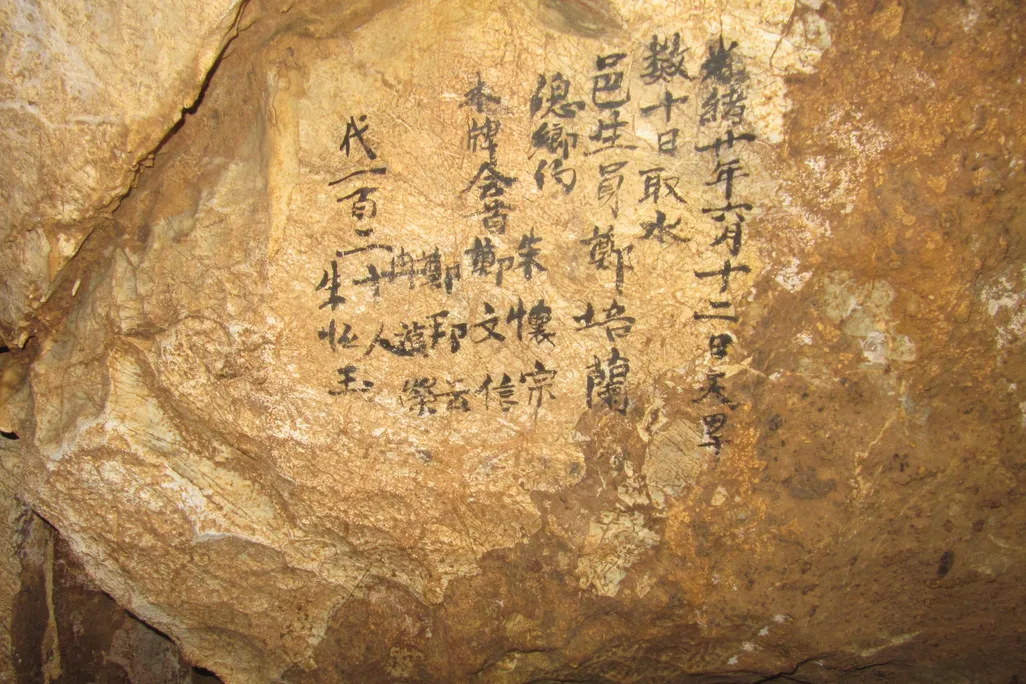 光緒廿年六月十二日天旱
數十日取水
邑生員鄭培蘭
總鄉約 朱懷宗
本牌会首鄭文信
鄭邦云
冉榮
代一百二十人
朱怀玉